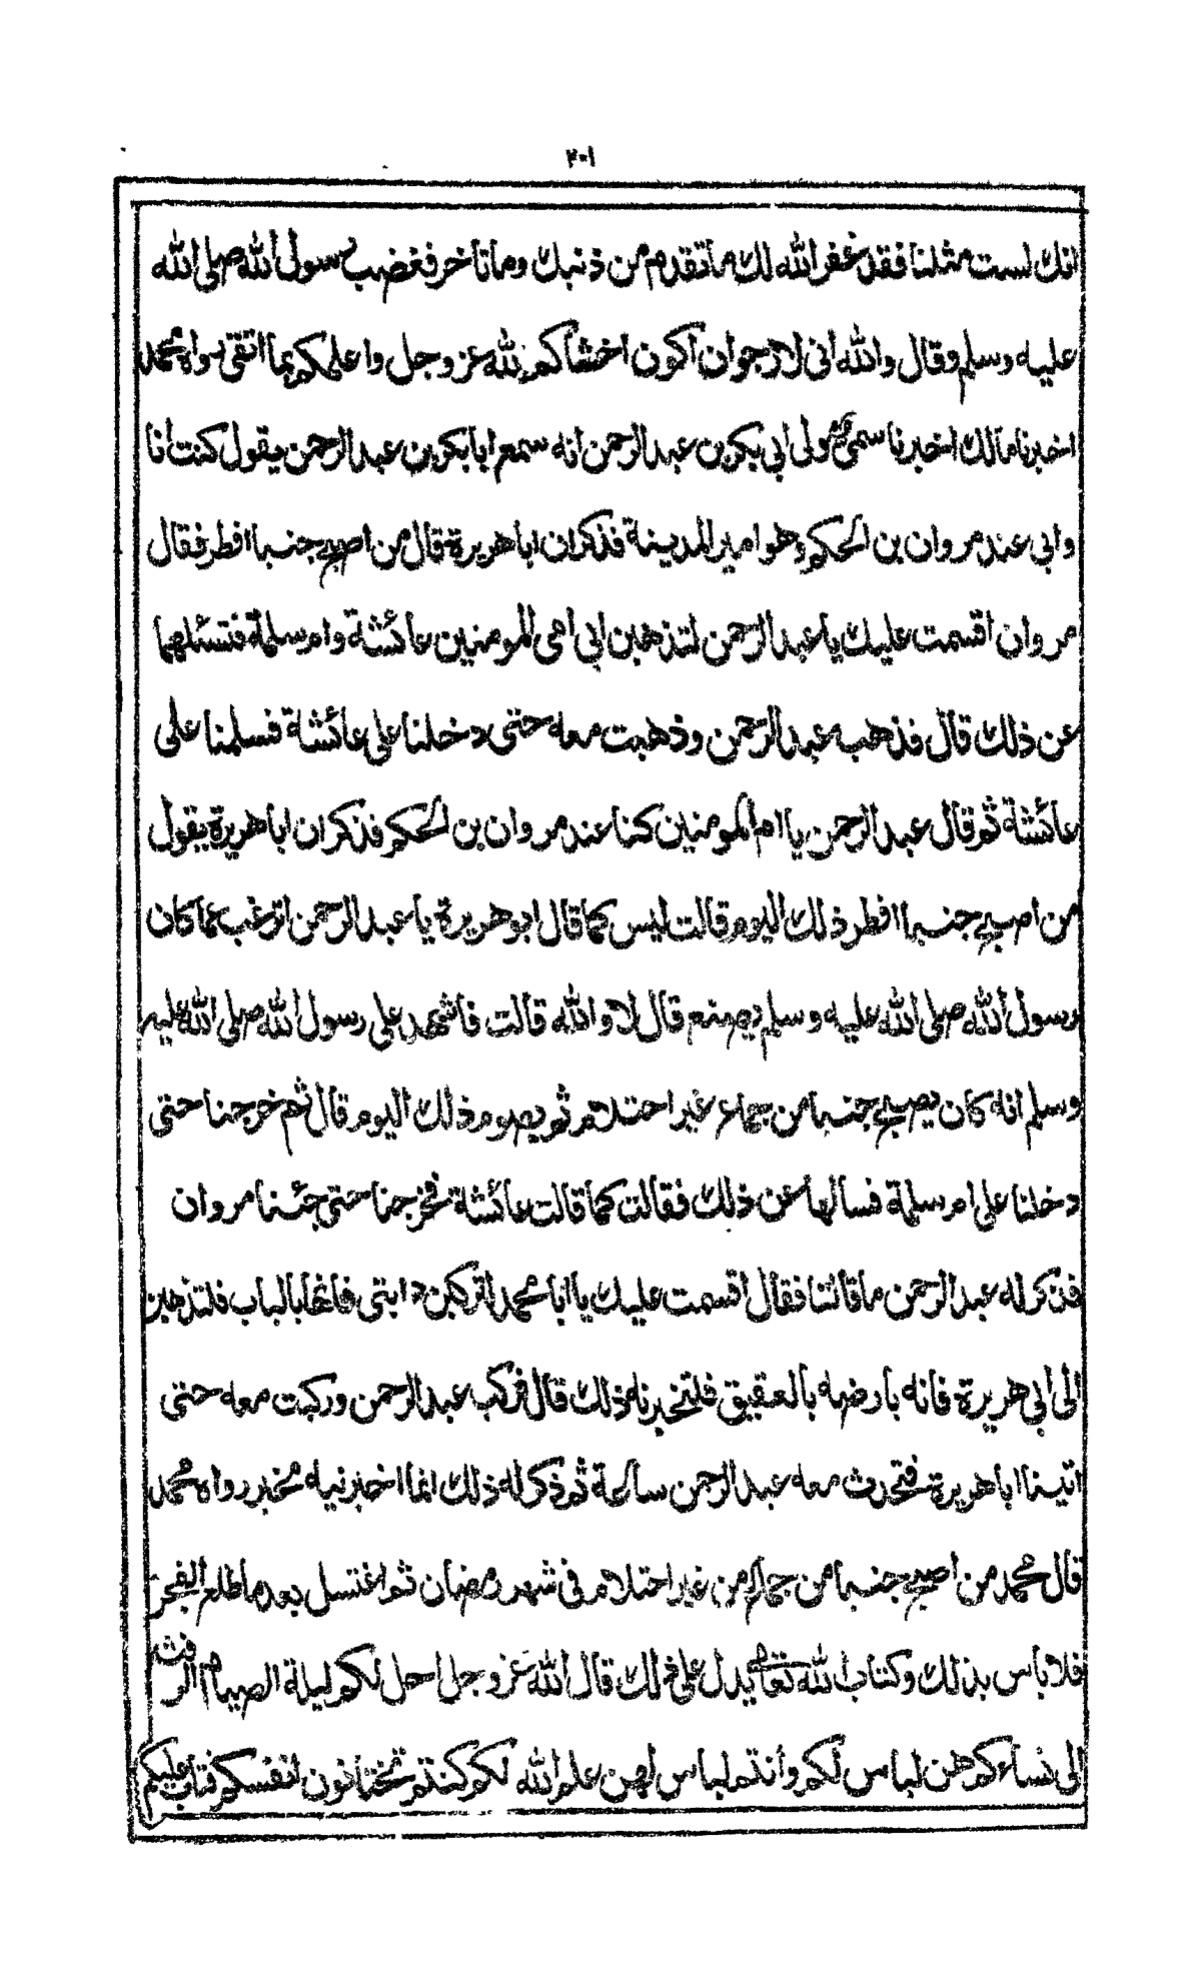 ٢٠١
انك لست مثلنا فقد غفر الله لك ما تقدم من ذنبك وما تأخر فغضب رسول الله صلى الله
عليه وسلم وقال والله انى لارجوان اكون اخشاكم لله عز وجل واعلمكم بما اتقى رواه محمد
اخبرنا مالك اخبرنا سمى مولى ابى بكر بن عبد الرحمن انه سمع ابا بكر بن عبد الرحمن يقول كنت انا
وابى عند مروان بن الحكم وهو امير المدينة فذكر ان ابا هريرة قال من اصبح جنبا افطر فقال
مروان اقسمت عليك يا عبد الرحمن لتذهبن الى امى المومنين عائشة وام سلمة فتسئلهما
عن ذلك قال فذهب عبد الرحمن وذهبت معه حتى دخلنا على عائشة فسلمنا على
عائشة ثم قال عبد الرحمن يا ام المومنين كنا عند مروان بن الحكم فذكر ان ابا هريرة يقول
من اصبح جنبا افطر ذلك اليوم قالت ليس كما قال ابو هريرة يا عبد الرحمن اترغب عما كان
رسول الله صلى الله عليه وسلم يصنع قال لا والله قالت فاشهد على رسول الله صلى الله عليه
وسلم انه كان يصبح جنبا من جماع غير احتلام ثم يصوم ذلك اليوم قال ثم خرجنا حتى
دخلنا على ام سلمة فسألها عن ذلك فقالت كما قالت عائشة فخرجنا حتى جئنا مروان
فذكر له عبد الرحمن ما قالتا فقال اقسمت عليك يا ابا محمد لتركبن دابتى فانها بالباب فلتذهبن
الى ابى هريرة فانه بارضه بالعقيق فلتخبرنه ذلك قال فركب عبد الرحمن وركبت معه حتى
اتينا ابا هريرة فتحدث معه عبد الرحمن ساعة ثم ذكر له ذلك انما اخبرنيه مخبر رواه محمد
قال محمد من اصبح جنبا من جماع من غير احتلام فى شهر رمضان ثم اغتسل بعد ما طلع الفجر
فلا باس بذلك وكتاب الله تعالى يدل على ذلك قال الله عز وجل احل لكم ليلة الصيام الرفث
الى نساءكم هن لباس لكم وأنتم لباس لهن علم الله لكم كنتم تختانون انفسكم فتاب عليكم